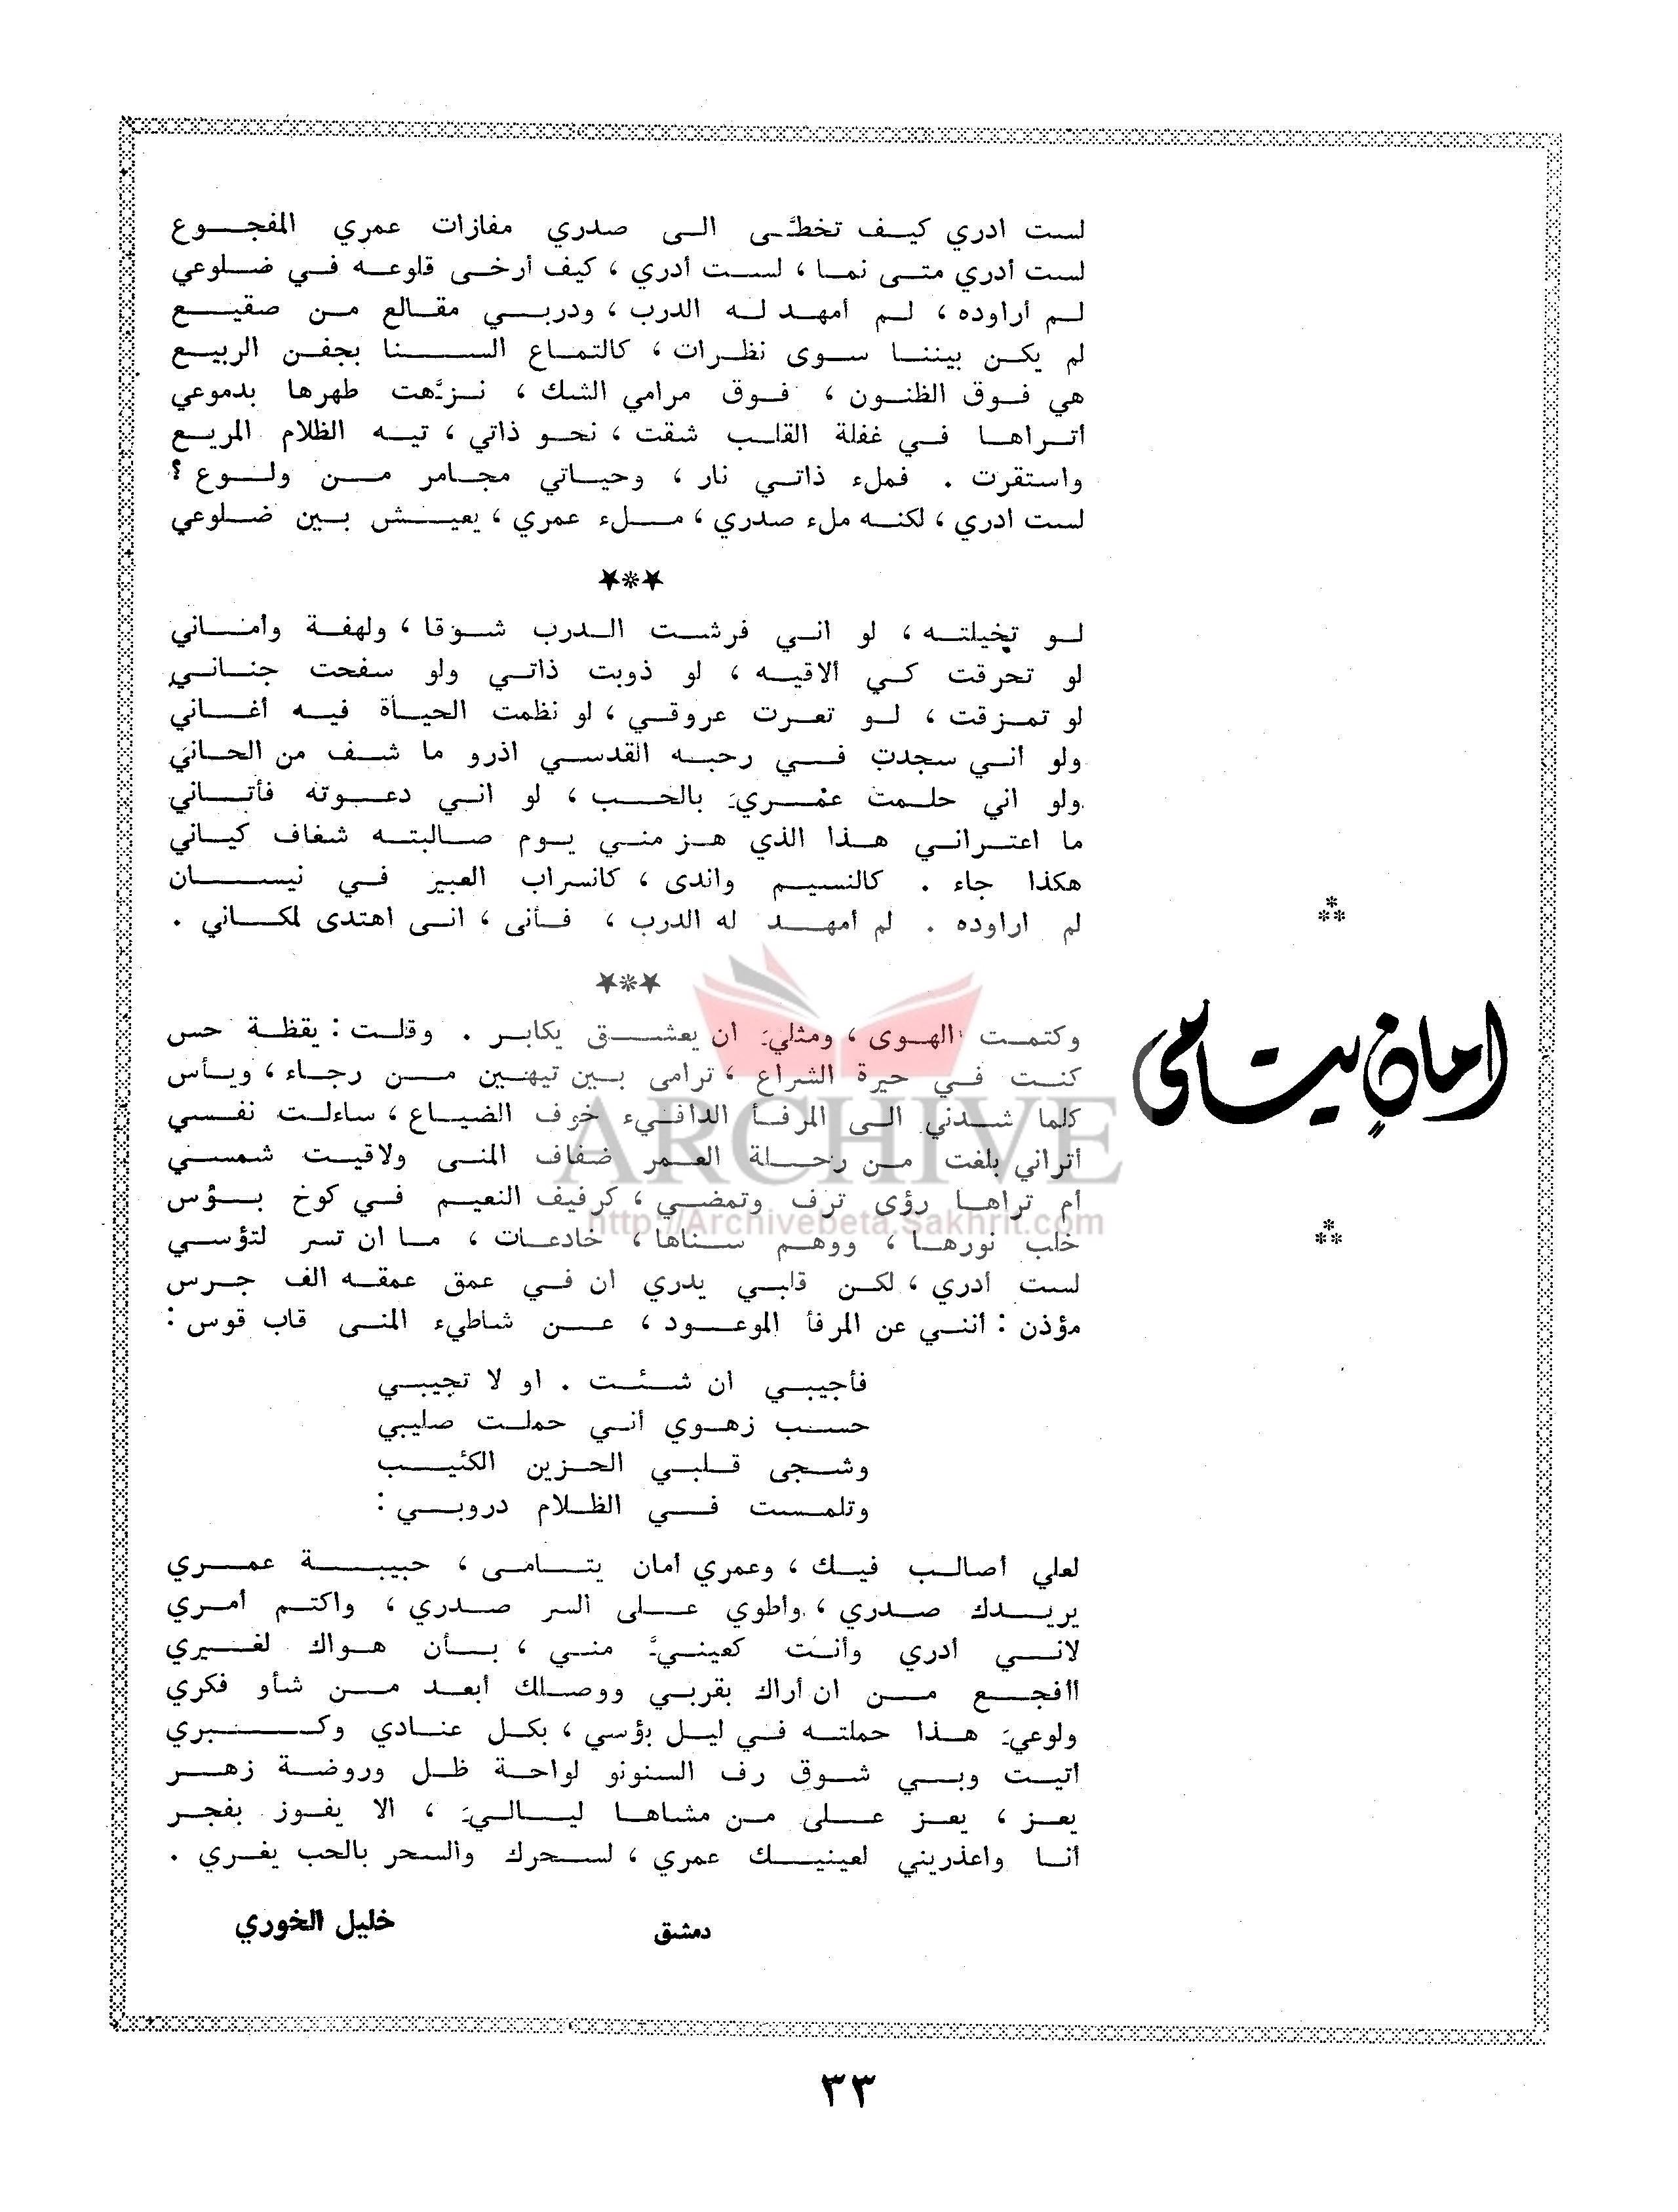 امانٍ يتامى
لست ادري كيف تخطَّى الى صدري مفازات عمري المفجوع
لست أدري متى نما ، لست أدري ، كيف أرخى قلوعه في ضلوعي
لم أراوده ، لم أمهد له الدرب ، ودربي مقالع من صقيع
لم يكن بيننا سوى نظرات ، كالتماع السنا بجفن الربيع
هي فوق الظنون ، فوق مرامي الشك ، نزَّهت طهرها بدموعي
أتراها في غفلة القلب شقت ، نحو ذاتي ، تيه الظلام المريع
واستقرت . فملء ذاتي نار ، وحياتي مجامر من ولوع ؟
لست ادري ، لكنه ملء صدري ، ملء عمري ، يعيش بين ضلوعي
★*★
لو تخيلته ، لو اني فرشت الدرب شوقا ، ولهفة وأماني
لو تحرقت كي ألاقيه ، لو ذوبت ذاتي ولو سفحت جناني
لو تمزقت ، لو تعرت عروقي ، لو نظمت الحياة فيه أغاني
ولو أني سجدت في رحبه القدسي اذرو ما شف من الحاني
ولو اني حلمت عمْري بالحب ، لو اني دعوته فأتاني
ما اعتراني هذا الذي هز مني يوم صالبته شغاف كياني
هكذا جاء . كالنسيم واندى ، كانسراب العبير في نيسان
لم اراوده . لم أمهد له الدرب ، فأنى ، انى اهتدى لمكاني .
★*★
وكتمت الهوى ، ومثليَ ان يعشق يكابر . وقلت : يقظة حس
كنت في حيرة الشراع ، ترامى بين تيهين من رجاء ، ويأس
كلما شدني الى المرفأ الدافيء خوف الضياع ، ساءلت نفسي
أتراني بلغت من رحلة العمر ضفاف المنى ولاقيت شمسي
أم تراها رؤى ترف وتمضي ، كرفيف النعيم في كوخ بؤس
خلب نورها ، ووهم سناها ، خادعات ، ما ان تسر لتؤسي
لست أدري ، لكن قلبي يدري ان في عمق عمقه الف جرس
مؤذن : أنني عن المرفأ الموعود ، عن شاطيء المنى قاب قوس :
فأجيبي ان شئت . او لا تجيبي
حسب زهوي أني حملت صليبي
وشجى قلبي الحزين الكئيب
وتلمست في الظلام دروبي :
لعلي أصالب فيك ، وعمري أمان يتامى ، حبيبة عمري
يريدك صدري ، وأطوي على السر صدري ، واكتم أمري
لاني أدري وأنت كعينيَّ مني ، بأن هواك لغيري
أأفجع من ان أراك بقربي ووصلك أبعد من شأو فكري
ولوعيَ هذا حملته في ليل بؤسي ، بكل عنادي وكبري
أتيت وبي شوق رف السنونو لواحة ظل وروضة زهر
يعز ، يعز على من مشاها لياليَ ، الا يفوز بفجر
أنا واعذريني لعينيك عمري ، لسحرك والسحر بالحب يغري .
دمشق
خليل الخوري
ARCHIVE
http://Archivebeta.Sakhrit.com
٣٣